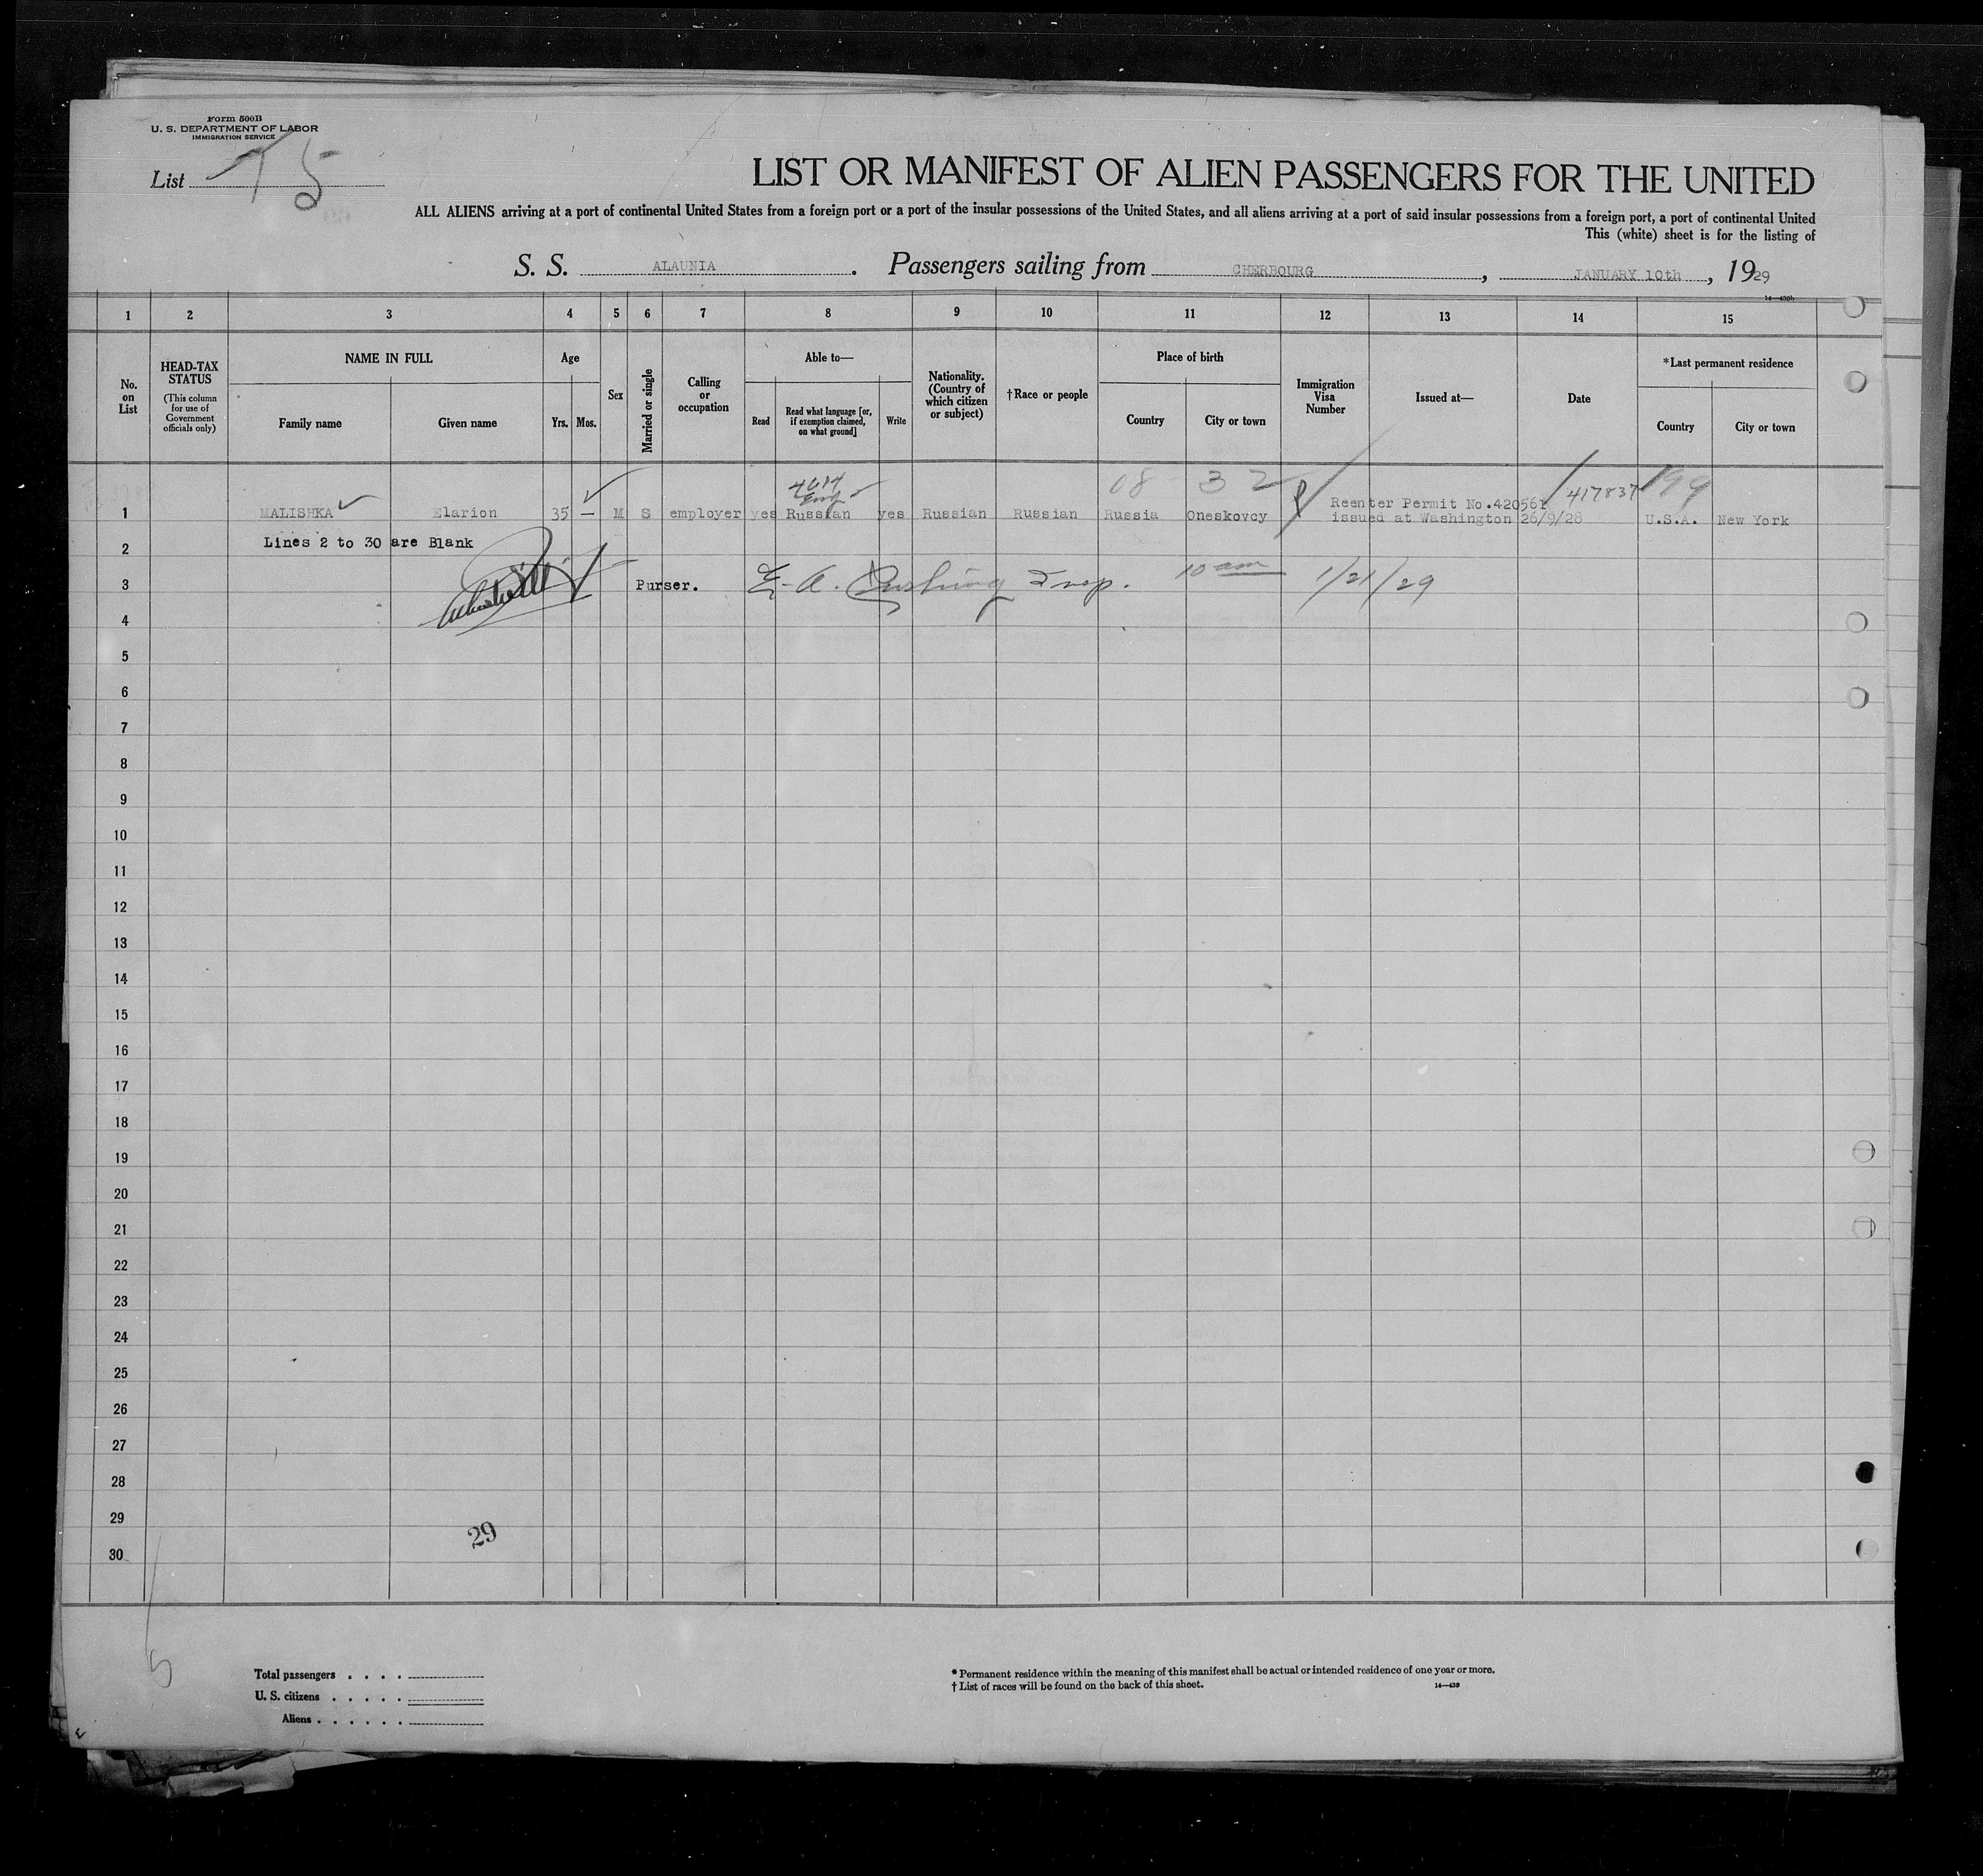 Form 500B
U. S. DEPARTMENT OF LABOR
IMMIGRATION SERVICE
List 5
LIST OR MANIFEST OF ALIEN PASSENGERS FOR THE UNITED
ALL ALIENS arriving at a port of continental United States from a foreign port or a port of the insular possessions of the United States, and all aliens arriving at a port of said insular possessions from a foreign port, a port of continental United
This (white) sheet is for the listing of
S. S. ALAUNIA. Passengers sailing from CHERBOURG, JANUARY 10th, 1929
14—430b
1 2 3 4 5 6 7 8 9 10 11 12 13 14 15
No. on List
HEAD-TAX STATUS
(This column for use of Government officials only)
NAME IN FULL
Family name Given name
Age
Yrs. Mos.
Sex
Married or single
Calling or occupation
Able to—
Read
Read what language [or, if exemption claimed, on what ground]
Write
Nationality. (Country of which citizen or subject)
†Race or people
Place of birth
Country City or town
Immigration Visa Number
Issued at—
Date
*Last permanent residence
Country City or town
08 32 199
4614
Eng
417837
1 MALISHKA Elarion 35 — M S employer yes Russian yes Russian Russian Russia Oneskovcy Reenter Permit No.420561
issued at Washington 26/9/28 U.S.A. New York
2 Lines 2 to 30 are Blank
3 Purser. E. A. Cushing Insp. 10 am 1/21/29
4
5
6
7
8
9
10
11
12
13
14
15
16
17
18
19
20
21
22
23
24
25
26
27
28
29
30
29
5
Total passengers . . . .
U. S. citizens . . . . .
Aliens . . . . . .
* Permanent residence within the meaning of this manifest shall be actual or intended residence of one year or more.
† List of races will be found on the back of this sheet.
14—430